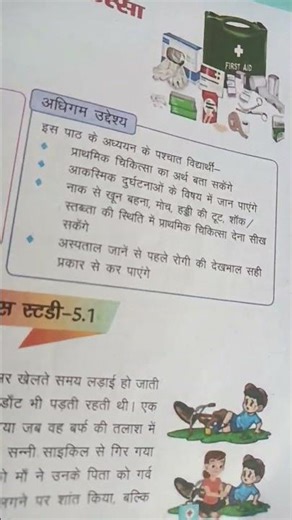 FIRST AID
अधिगम उद्देश्य
इस पाठ के अध्ययन के पश्चात विद्यार्थी–
प्राथमिक चिकित्सा का अर्थ बता सकेंगे
आकस्मिक दुर्घटनाओं के विषय में जान पाएंगे
नाक से खून बहना, मोच, हड्डी की टूट, शॉक/
स्तब्धता की स्थिति में प्राथमिक चिकित्सा देना सीख
सकेंगे
अस्पताल जानें से पहले रोगी की देखभाल सही
प्रकार से कर पाएंगे
स्टडी-5.1
खेलते समय लड़ाई हो जाती
डाँट भी पड़ती रहती थी। एक
जब वह बर्फ की तलाश में
सन्नी साइकिल से गिर गया
माँ ने उनके पिता को गर्व
लगने पर शांत किया, बल्कि